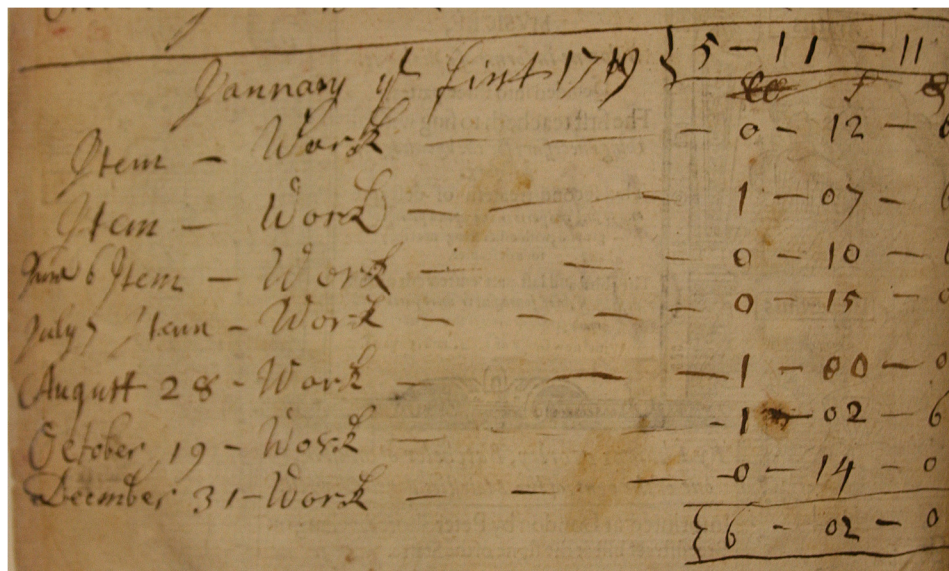 January yᵉ first 1719 { 5 - 11 - 11
Item - Work - - - 0 - 12 - 6
Item - Work - - - 1 - 07 - 6
June 6 Item - Work - - - - 0 - 10 - 6
July 7 Item - Work - - - - 0 - 15 - 0
August 28 - Work - - - 1 - 00 - 0
October 19 - Work - - - - 1 - 02 - 6
December 31 - Work - - - 0 - 14 - 0
{ 6 - 02 - 0